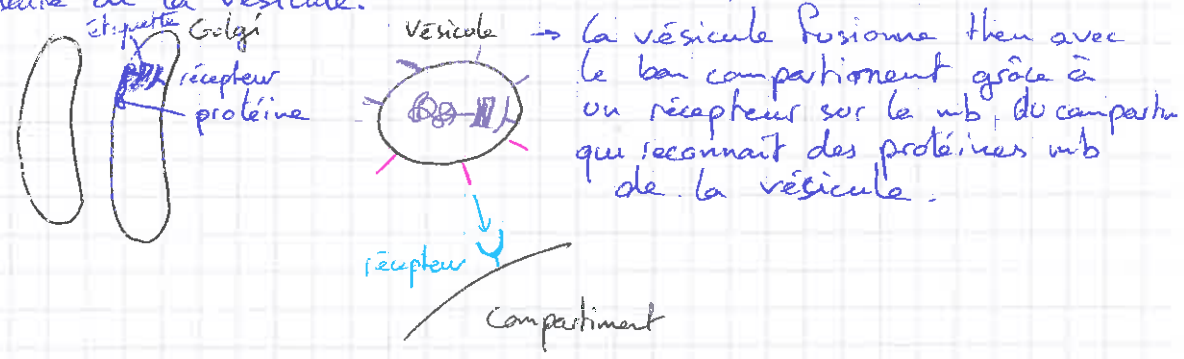 de la vésicule.
étiquette Golgi
récepteur
protéine
vésicule → la vésicule fusionne then avec
le bon compartiment grâce à
un récepteur sur la mb. du compartim
qui reconnait des protéines mb
de la vésicule.
récepteur
compartiment